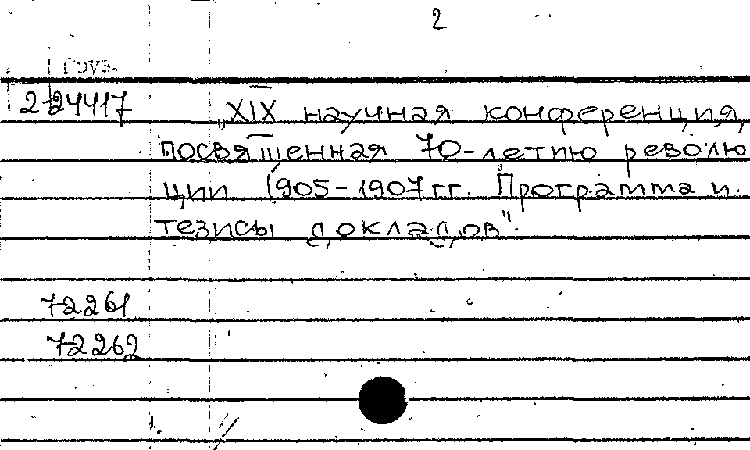 2
Груз.
2-24417 „XIX научная конференция,
посвященная 70-летию револю
ции 1905-1907 гг. Программа и
тезисы докладов".
72261
72262